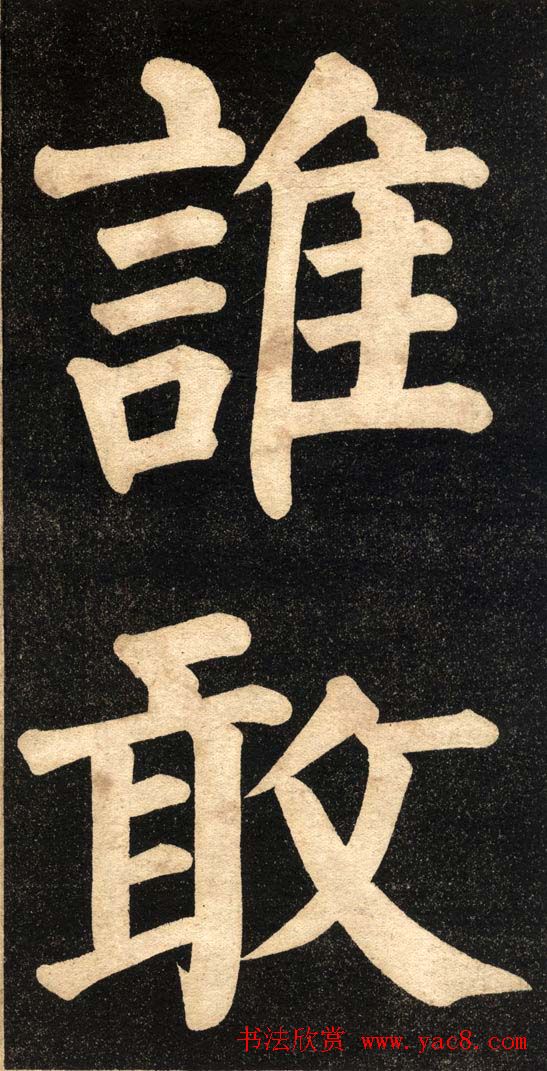 誰
敢
书法欣赏 www.yac8.com